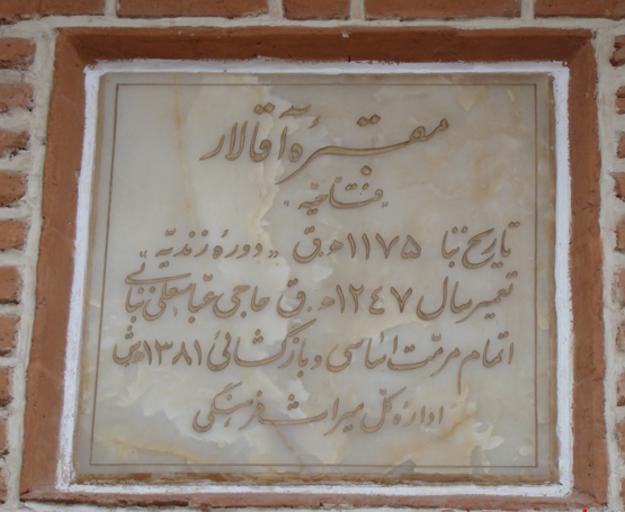 مقبرهٔ آقالار
"فتاحیه"
تاریخ بنا ۱۱۷۵ه‍.ق "دورهٔ زندیّه"
تعمیر سال ۱۲۴۷ه‍.ق حاجی عبّاسعلی بنائی
اتمام مرمّت اساسی و بازگشائی ۱۳۸۱ه‍.ش
ادارهٔ کلّ میراث فرهنگی